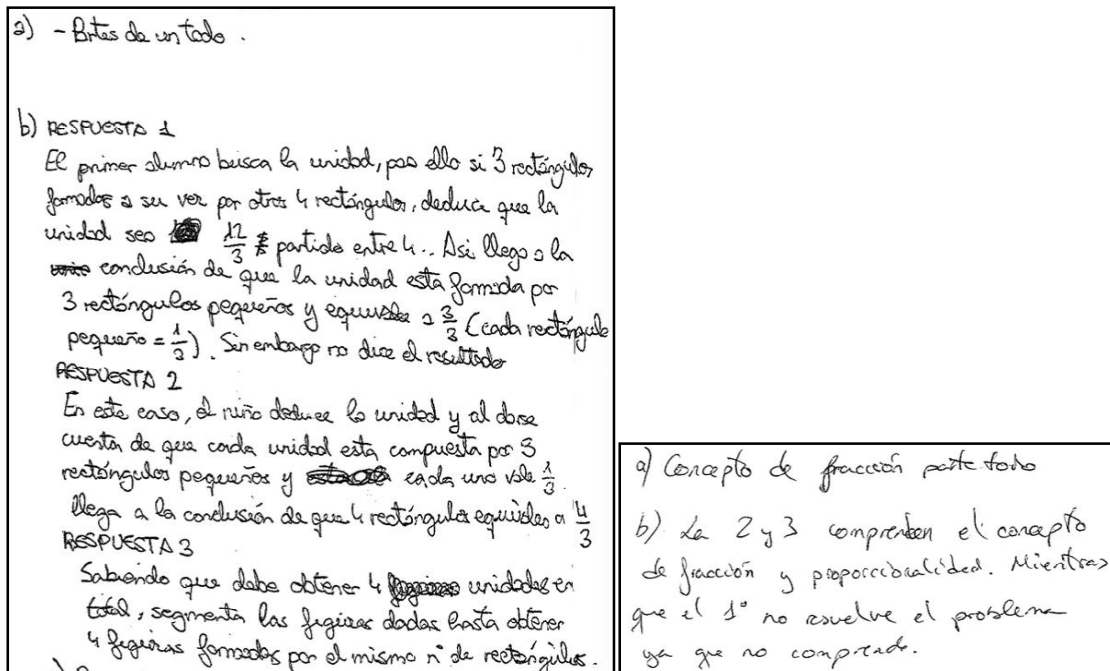 a) - Partes de un todo.
b) RESPUESTA 1
El primer alumno busca la unidad, para ello si 3 rectángulos
formados a su vez por otros 4 rectángulos, deduce que la
unidad sea 12/3 partido entre 4.. Así llego a la
conclusión de que la unidad esta formada por
3 rectángulos pequeños y equivale a 3/3 (cada rectángulo
pequeño = 1/3). Sin embargo no dice el resultado
RESPUESTA 2
En este caso, el niño deduce la unidad y al darse
cuenta de que cada unidad esta compuesta por 3
rectángulos pequeños y cada uno vale 1/3.
llega a la conclusión de que 4 rectángulos equivalen a 4/3
RESPUESTA 3
Sabiendo que debe obtener 4 unidades en
total, segmenta las figuras dadas hasta obtener
4 figuras formadas por el mismo nº de rectángulos.
a) Concepto de fracción parte todo
b) La 2 y 3 comprenden el concepto
de fracción y proporcionalidad. Mientras
que el 1º no resuelve el problema
ya que no comprende.